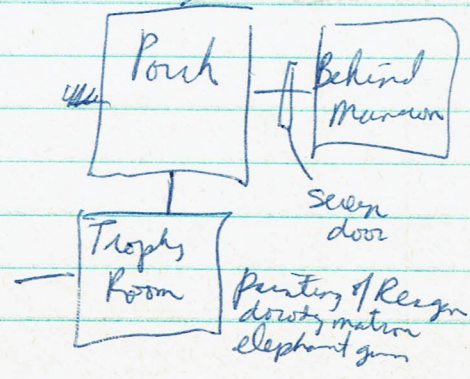 Porch
Behind
Mansion
screen
door
Trophy
Room
Painting of Reagan
dowdy matron
elephant gun